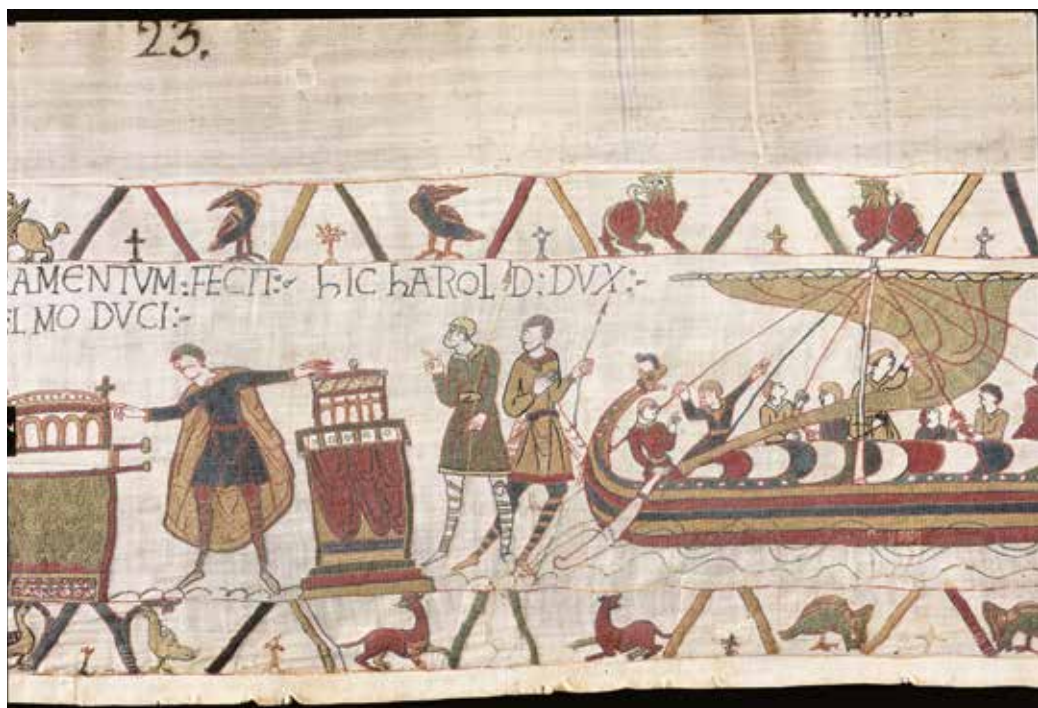 23.
AMENTVM:FECIT:- hIC hAROLD:DVX:-
ELMO DVCI:-